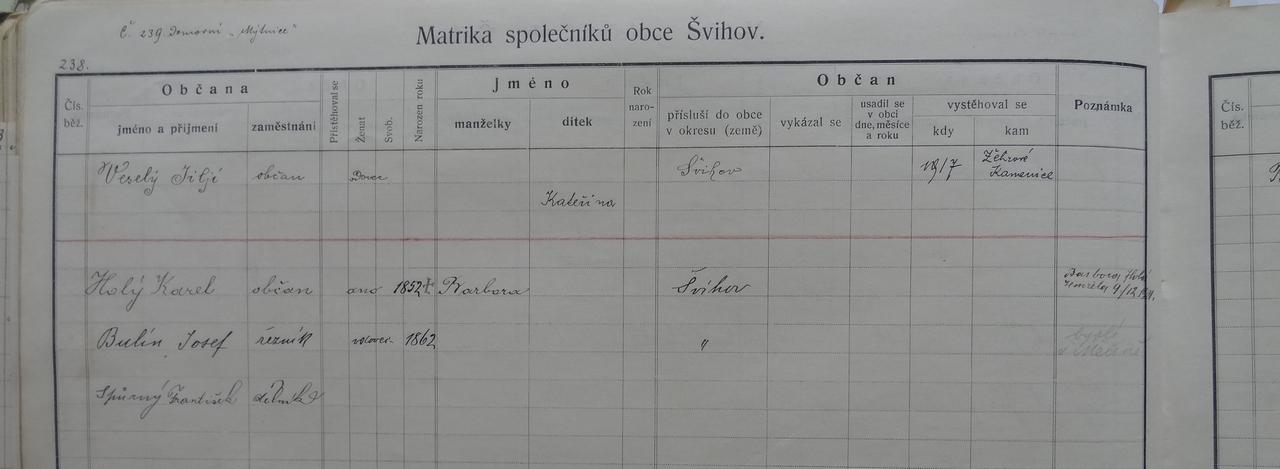 č. 239. Domovní „Mýtnice"
Matrika společníků obce Švihov.
238.
Čís. běž.
Občana
jméno a příjmení
zaměstnání
Přistěhoval se
Ženat
Svob.
Narozen roku
Jméno
manželky
dítek
Rok naro- zení
Občan
přísluší do obce v okresu (země)
vykázal se
usadil se v obci dne, měsíce a roku
vystěhoval se
kdy
kam
Poznámka
Čís. běž.
Veselý Jiljí občan Švihov 19/7 Kamenice
Kateřina
Holý Karel občan ano 1852 † Barbora Švihov Barbora Holá zemřela 9/12
Bulín Josef řezník vdovec 1862 „ bydlí
Spurný František dělník